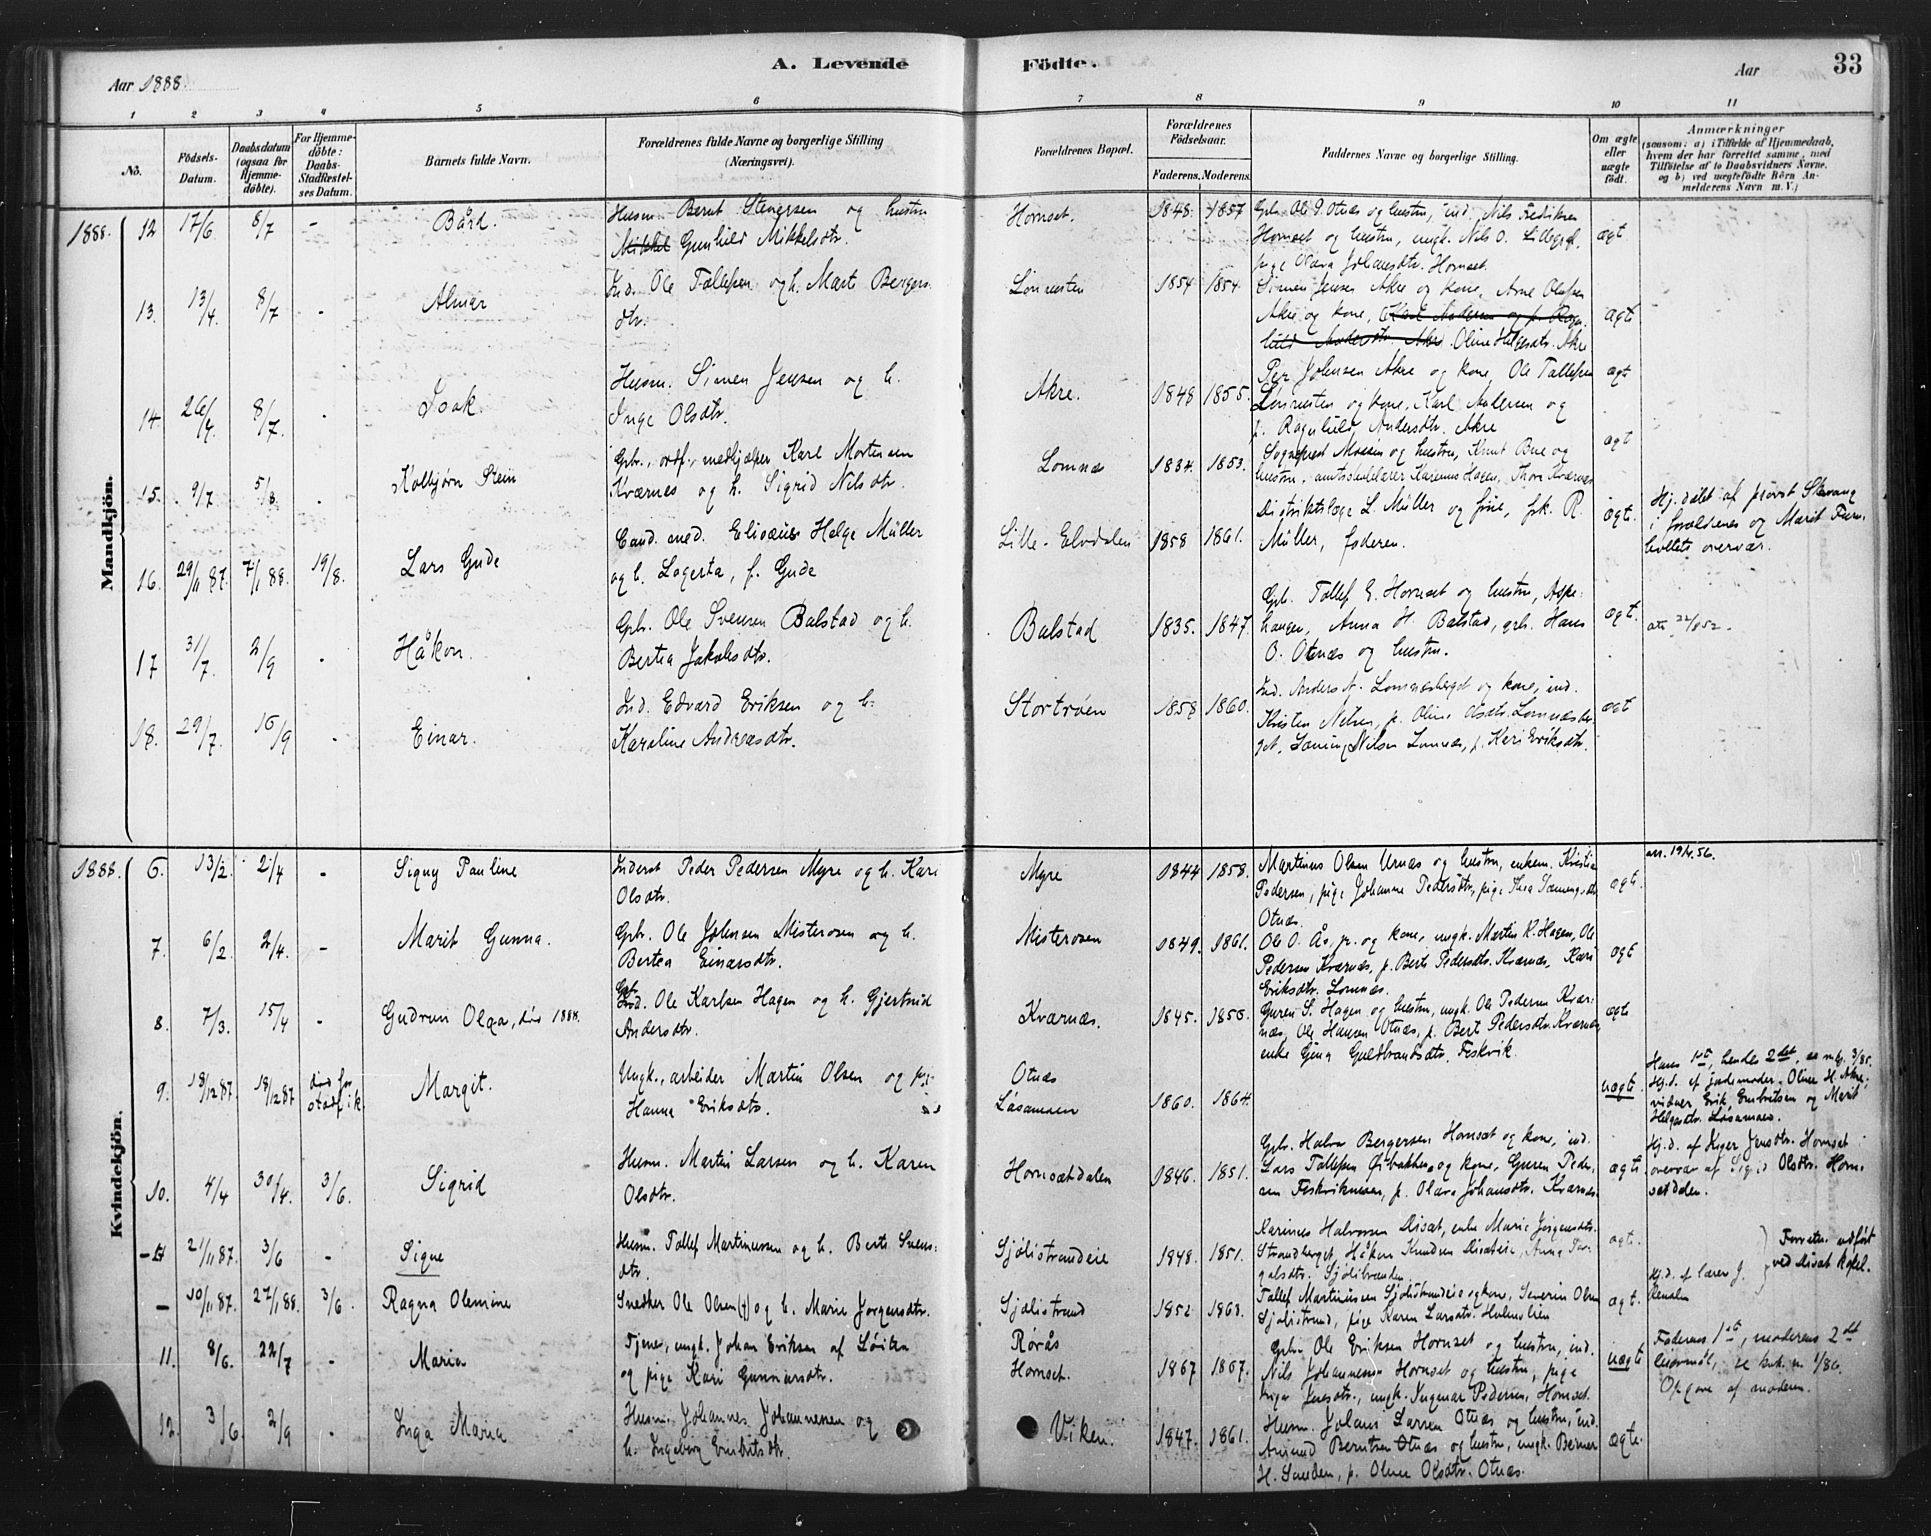 A. Levende Födte.
33
Aar 1888.
Aar
1 2 3 4 5 6 7 8 9 10 11
No.
Födsels-Datum.
Daabsdatum (ogsaa for Hjemmedöbte).
For Hjemmedöbte: Daabs-Stadfæstelses Datum.
Barnets fulde Navn.
Forældrenes fulde Navne og borgerlige Stilling (Næringsvei).
Forældrenes Bopæl.
Forældrenes Födselsaar.
Faderens. Moderens.
Faddernes Navne og borgerlige Stilling.
Om ægte eller uægte födt.
Anmærkninger
(saasom: a) i Tilfælde af Hjemmedaab, hvem der har forrettet samme, med Tilföielse af to Daabsvidners Navne, og b) ved uægtefödte Börn Anmelderens Navn m. V.)
Mandkjön.
1888. 12 17/6 8/7 - Bård. Husm. Bernt Stenersen og hustru
Mikkel Gunhild Mikkelsdtr. Hornset. 1848. 1857 Gbr. Ole P. Otnæs og hustru, ind. Nils Fredriksen
Hornset og hustru, ungk. Nils O.
pige Olava Johansdtr. Hornset. ægt
13. 13/4 8/7 - Almar Ind. Ole Tollefsen og h. Marte Bergers-
dtr. Lomnesten 1854 1854 Simen Jensen Akre og kone, Arne Olafsen
Akre og kone, Karl Andersen og p. Ragn-
hild Andersdtr. Akre Oline Helgesdtr. Akre ægte
14. 26/4 8/7 . Isak. Husm. Simen Jensen og h.
Inge Olsdtr. Akre. 1848 1855. Per Johnsen Akre og kone, Ole Tollefsen
Lomnesten og kone, Karl Andersen og
p. Ragnhild Andersdtr. Akre ægt
15. 9/7 5/8 . Kolbjørn Stein Gbr., ordf., medhjælper Karl Mortensen
Kværnes og h. Sigrid Nilsdtr. Lomnæs 1834. 1853. Sogneprest og hustru, Knut Bue og
hustru, Hagen, Thore Kværnæs ægt
16. 29/11 87. 7/1 88. 19/8. Lars Gude Cand. med. Elisæus Helge Müller
og h. Lagerta, f. Gude Lille-Elvdalen 1858 1861. Distriktslæge L. Müller og frue, frk. R.
Müller, faderen. ægte. Hj. døbt af provst Skavang
i forældrenes og Marit Furu-
holtets overvær.
17 31/7. 2/9 . Håkon. Gbr. Ole Svensen Balstad og h.
Bertea Jakobsdtr. Balstad 1835. 1847. Gbr. Tollef E. Hornset og hustru, Aspe-
haugen, Anna H. Balstad, gbr. Hans
O. Otnæs og hustru. ægt. att. 22/8 52.
18. 29/7. 16/9 . Einar. Ind. Edvard Eriksen og h.
Karoline Andreasdtr. Stortrøen 1858 1860. Ind. Anders A. Lomnæsberget og kone, ind.
Kristen Nilsen, p. Oline Olsdtr. Lomnæsber-
get, Lomnæs, p. Kari Eriksdtr. ægt
Kvindekjön.
1888. 6. 13/2. 2/4 - Signy Pauline Inderst Peder Pedersen Myre og h. Kari
Olsdtr. Myre 1844 1858. Martinus Olsen Urnæs og hustru, enkem. Kristian
Pedersen, pige Johanne Pedersdtr., pige Thea Sæmingsdtr.
Otnæs ægte. att. 19/4.56.
7. 6/2 2/4. - Marit Gunna. Gbr. Ole Johnsen Misterosen og h.
Bertea Einarsdtr. Misterosen 1849. 1861. Ole O. Ås, p. og kone, ungk. Martin K. Hagen, Ole
Pedersen Kværnæs, p. Berte Pedersdtr. Kværnæs, Kari
Eriksdtr. Lomnæs. ægt
8. 7/3. 15/4 - Gudrun Olga, død 1888. Gbr. Ind. Ole Karlsen Hagen og h. Gjertrud
Andersdtr. Kværnæs. 1845. 1850. Guren S. Hagen og hustru, ungk. Ole Pedersen Kvær-
næs, Ole Hansen Otnæs, p. Berte Pedersdtr. Kværnæs,
enke Gina Guldbrandsdtr. Fiskvik. ægte
9. 18/12 87 18/12 87 død før stadf. Margit. Ungk., arbeider Martin Olsen og pi-
Hanna Eriksdtr. Otnæs
Løsamoen 1860. 1864. uægte. Hans 1ste, hendes 2det, se no. 3/85.
Hj.d. af jordemoder Oline H. Akre,
vidner Erik Embretsen og Marit
Helgesdtr. Løsamoen.
10. 4/4 30/4. 3/6. Sigrid Husm. Martin Larsen og h. Karen
Olsdtr. Hornsætdalen 1846. 1851. Gbr. Halvor Bergersen Hornsæt og kone, ind.
Lars Tollefsen Øibakken og kone, Guren Peder-
sen Fiskvikmoen, p. Olava Johansdtr. Kværnæs ægte Hj.d. af Jensdtr. Hornset
overvær af Sigrid Olsdtr. Horn-
setdalen.
21/11 87. 3/6 - Signe Husm. Tollef Martinussen og h. Berte Svens-
dtr. Sjølistrandeie 1848. 1851. Karinus Halvorsen Disæt, enke Marie Jørgensdtr.
Strandberget, Håkon Knudsen Disæteie, Anna
Sjølistranden. ægte. Forretn. udført
ved Disæt kapel.
- 10/11 87. 27/1 88. 3/6. Ragna Olemine Snedker Ole Olsen(†) og h. Marie Jørgensdtr. Sjølistrand 1852 1863. Tollef Martinussen Sjølistrandeie og kone, Severin Olsen
Sjølistrand, pige Karen Larsdtr. Holmolien ægt. Hj.d. af lærer J.
11. 8/6. 22/7 . Maria Tjener, ungk. Johan Eriksen af
og pige Kari Gunnarsdtr. Rørås
Hornset. 1867 1867. Gbr. Ole Eriksen Hornset og hustru, ind.
Nils Johannessen Hornset og hustru, pige
Jensdtr., ungk. Ingemar Pedersen, Hornset uægte Faderens 1ste, moderens 2det
leiermål, se 1/86.
Opgave af moderen.
12. 3/6. 2/9 . Inga Maria Husm. Johannes Johannessen og
h. Ingeborg Embretsdtr. Viken. 1847. 1861. Husm. Johans Larsen Otnæs og hustru, ind.
Amund Berntsen Otnæs og hustru, ungk. Berner
H. p. Oline Olsdtr. Otnæs. ægte.